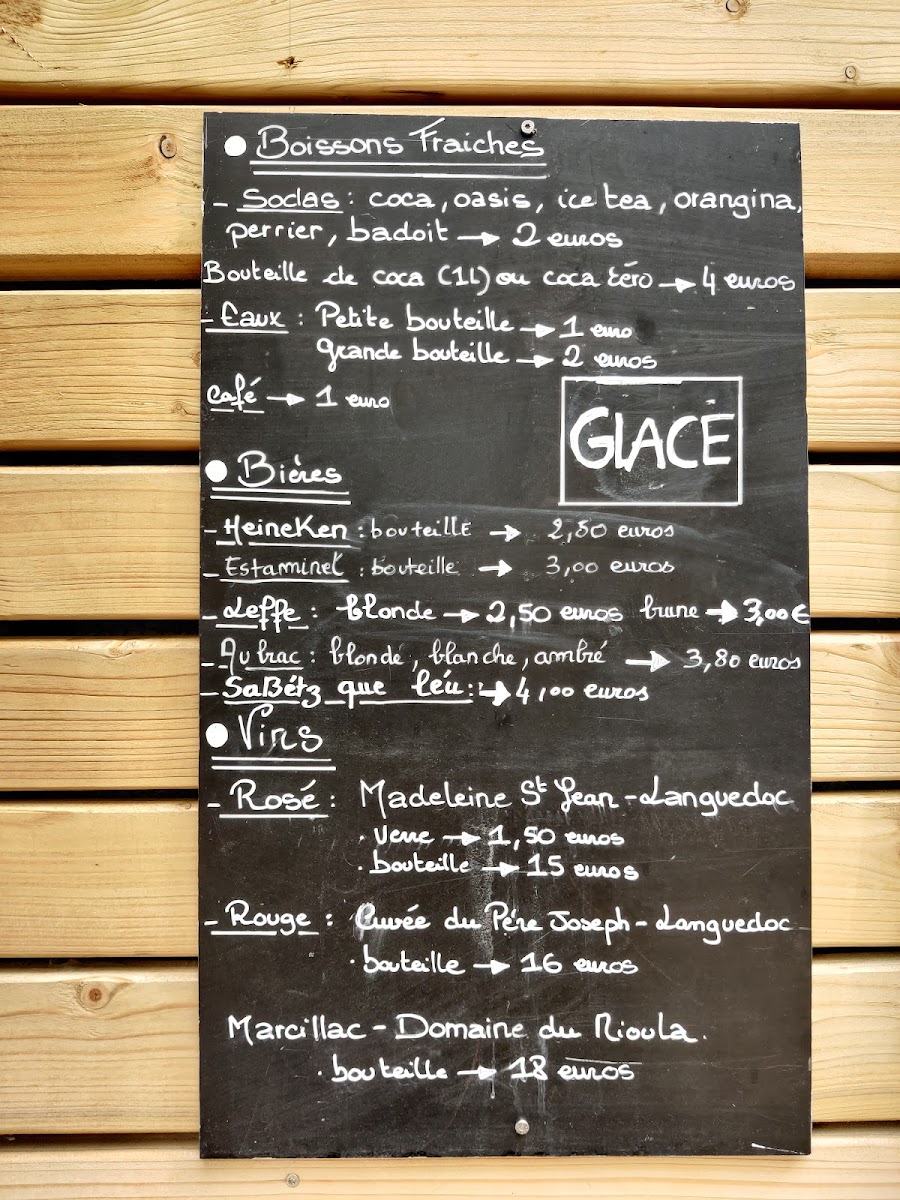 Boissons Fraiches
- Sodas : coca, oasis, ice tea, orangina,
perrier, badoit → 2 euros
Bouteille de coca (1L) ou coca Zéro → 4 euros
- Eaux : Petite bouteille → 1 euro
grande bouteille → 2 euros
café → 1 euro
GLACE
Bières
- HeineKen : bouteille → 2,50 euros
- Estaminet : bouteille → 3,00 euros
- Leffe : blonde → 2,50 euros brune → 3,00€
- Aubrac : blonde, blanche, ambré → 3,80 euros
- SaBétz que léu : → 4,00 euros
Vins
- Rosé : Madeleine St Jean - Languedoc
· verre → 1,50 euros
· bouteille → 15 euros
- Rouge : Cuvée du Père Joseph - Languedoc
· bouteille → 16 euros
Marcillac - Domaine du Mioula.
· bouteille → 18 euros